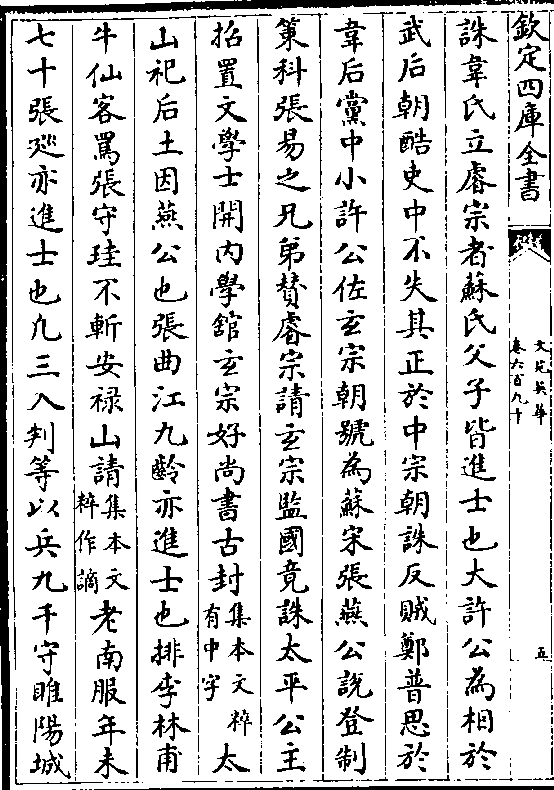 欽定四庫全書
文苑英華
卷六百九十
五
誅韋氏立睿宗者蘇氏父子皆進士也大許公為相於
武后朝酷吏中不失其正於中宗朝誅反賊鄭普思於
韋后黨中小許公佐玄宗朝號為蘇宋張燕公說登制
策科張易之兄弟賛睿宗請玄宗監國竟誅太平公主
招置文學士開内學舘玄宗好尚書古封集本文粹有中字太
山祀后土因燕公也張曲江九齡亦進士也排李林甫
牛仙客罵張守珪不斬安禄山請集本文粹作謫老南服年未
七十張廵亦進士也凡三入判等以兵九千守睢陽城